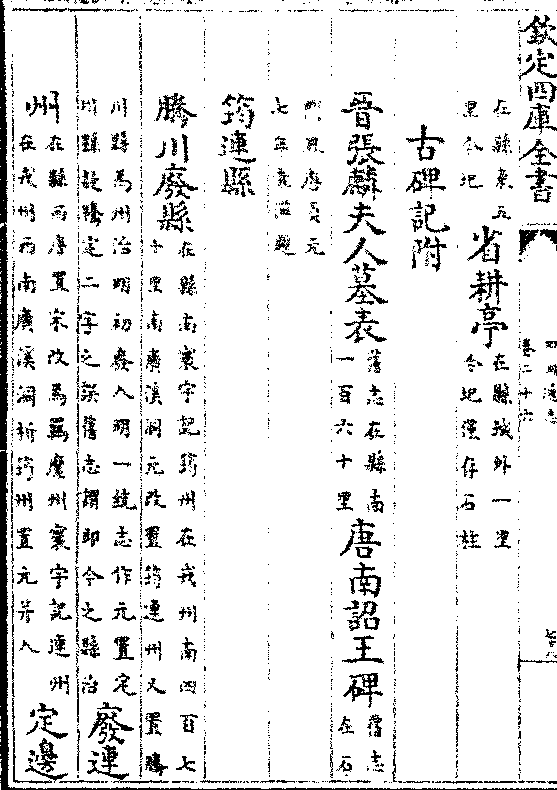 欽定四庫全書
四川通志
卷二十六
在縣東五
里今圮
省耕亭
在縣城外一里
今圮僅存石柱
古碑記附
晉張麟夫人墓表
舊志在縣南
一百六十里
唐南詔王碑
舊志
在石
唐貞元
七年袁滋題
筠連縣
騰川廢縣
在縣南寰宇記筠州在戎州南四百七
十里南廣溪洞元改置筠連州又置騰
川縣爲州治明初廢入明一統志作元置定
川縣改騰定二字之誤舊志謂即今之縣治
廢連
州
在縣西唐置宋改爲羈縻州寰宇記連州
在戎州西南廣溪洞析筠州置元并入
定邊